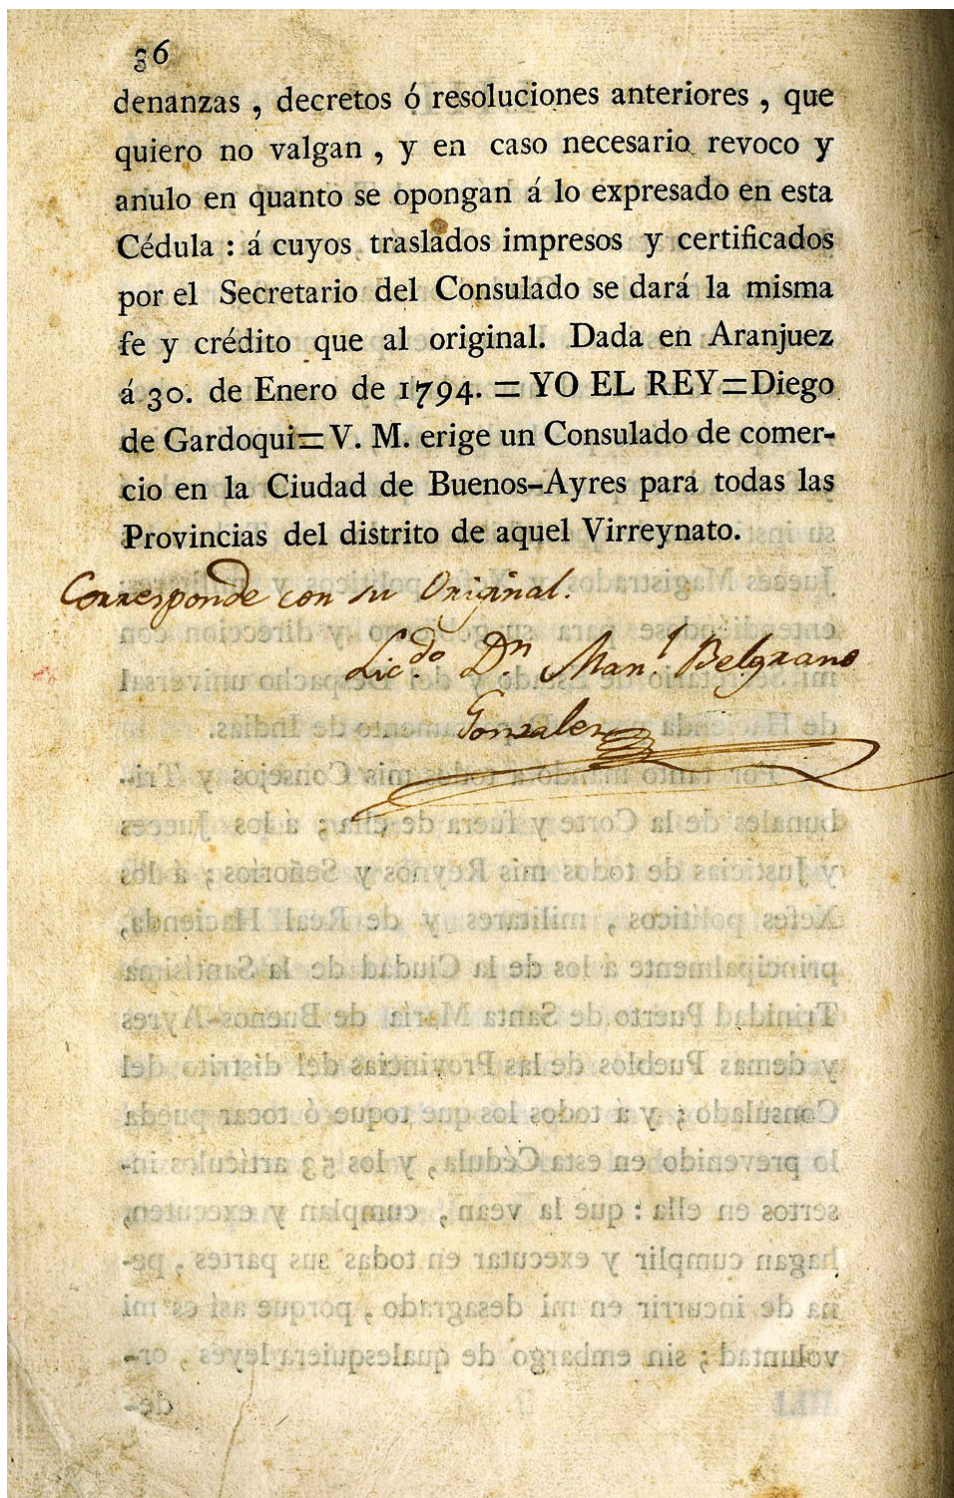 36
denanzas , decretos ó resoluciones anteriores , que
quiero no valgan , y en caso necesario revoco y
anulo en quanto se opongan á lo expresado en esta
Cédula : á cuyos traslados impresos y certificados
por el Secretario del Consulado se dará la misma
fe y crédito que al original. Dada en Aranjuez
á 30. de Enero de 1794. = YO EL REY=Diego
de Gardoqui=V. M. erige un Consulado de comer-
cio en la Ciudad de Buenos-Ayres para todas las
Provincias del distrito de aquel Virreynato.
Corresponde con su Original.
Lic.do Dn Man.l Belgrano
Gonzalez